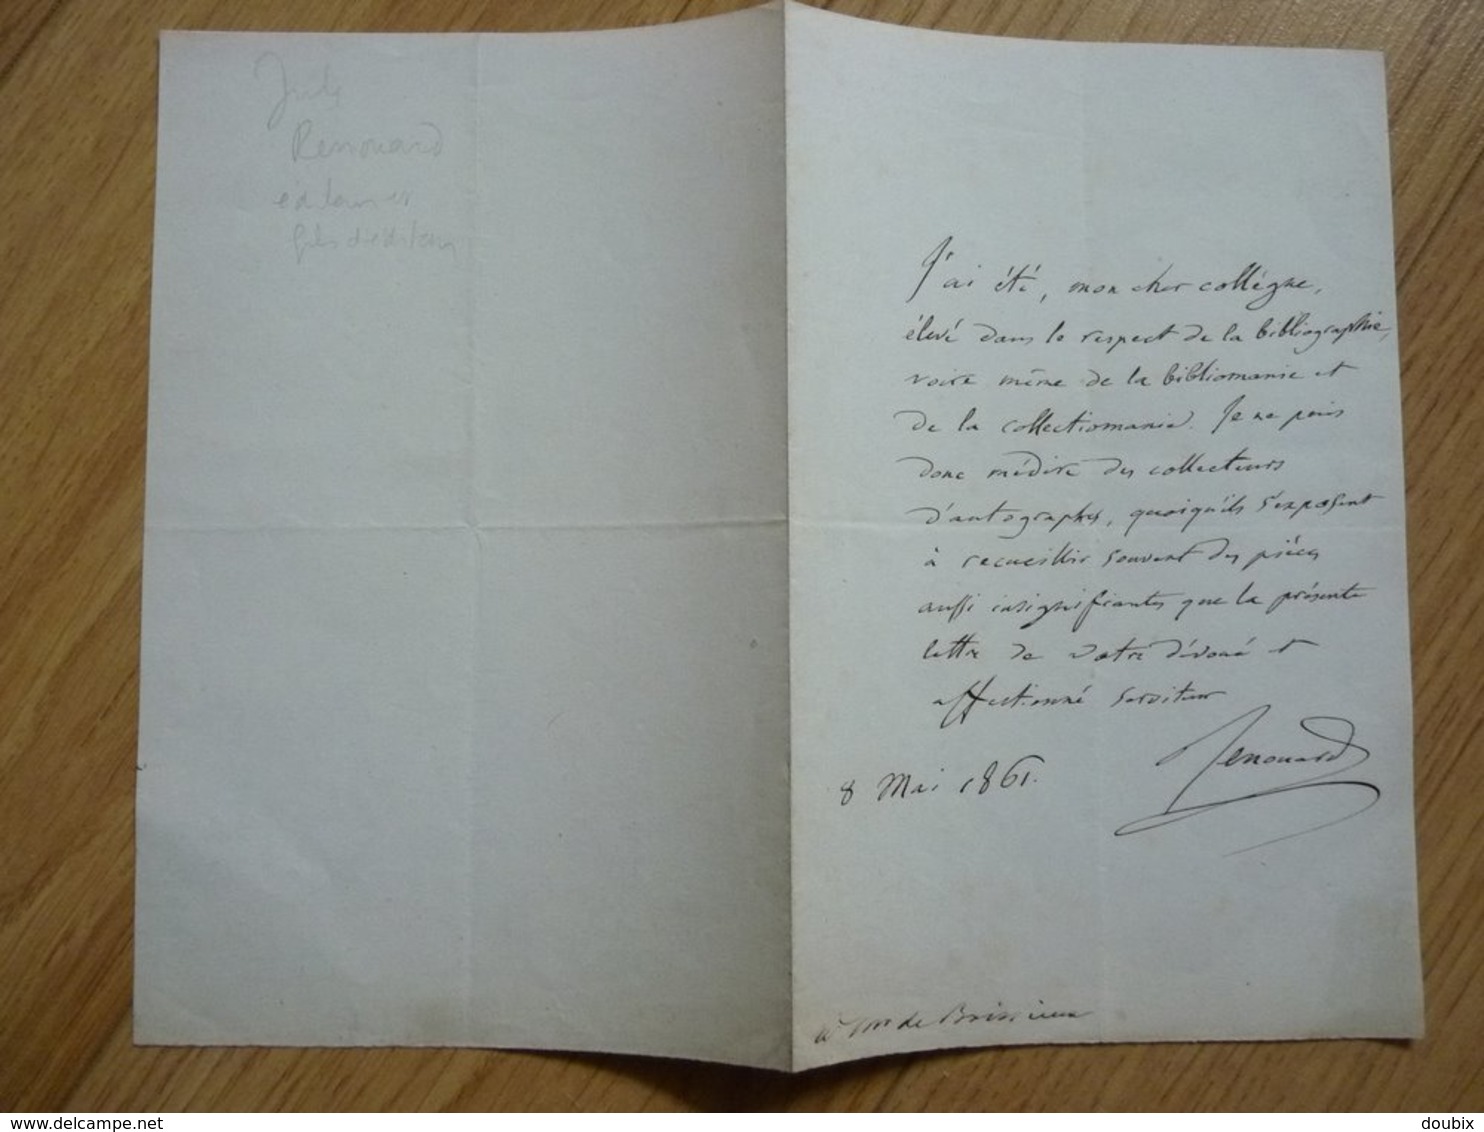 Jules
Renouard
éditeur et
fils d'éditeur
J'ai été, mon cher collègue,
élevé dans le respect de la bibliographie,
voire même de la bibliomanie et
de la collectiomanie. Je ne puis
donc médire des collecteurs
d'autographes, quoiqu'ils s'exposent
à recueillir souvent des pièces
aussi insignifiantes que la présente
lettre de votre dévoué et
affectionné serviteur
Renouard
8 Mai 1861.
à Mr de Boissieu
delcampe.net
doubix